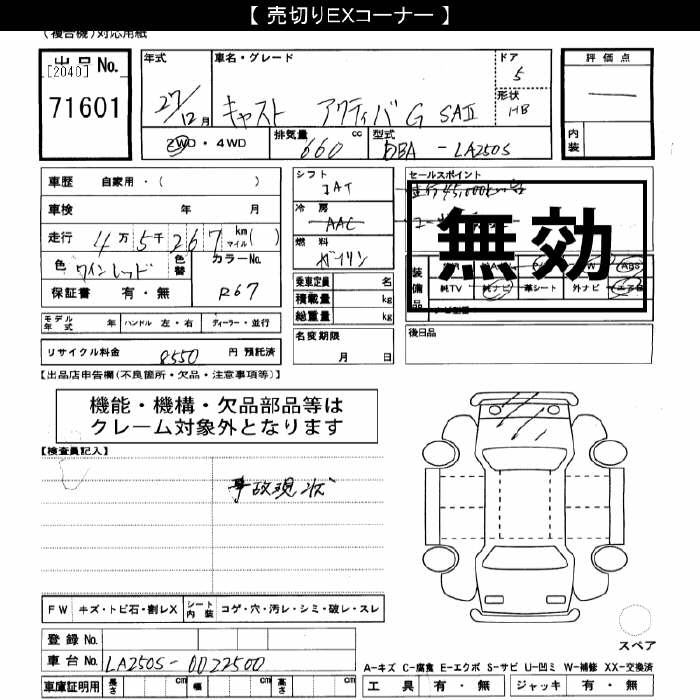 【 売切りEXコーナー 】
(複合機)対応用紙
出品No.
[2040]
71601
年式
27/12月
車名・グレード
キャスト アクティバG SAⅡ
ドア
5
形状
HB
評価点
内装
2WD・4WD
排気量
660 cc
型式
DBA - LA250S
車歴 自家用・( )
車検 年 月
走行 4万5千267 km マイル( )
色 ワインレッド
色替
カラーNo.
R67
保証書 有・無
シフト
IAT
冷房
AAC
燃料
ガソリン
乗車定員 名
積載量 kg
総重量 kg
セールスポイント
無効
装備品
純TV 純ナビ 革シート 外ナビ エア
モデル年式 年 ハンドル 左・右 ディーラー・並行
リサイクル料金 8550 円 預託済
名変期限
月 日
後日品
【出品店申告欄(不良箇所・欠品・注意事項等)】
機能・機構・欠品部品等は
クレーム対象外となります
【検査員記入】
事故現状
FW キズ・トビ石・割レX シート内装 コゲ・穴・汚レ・シミ・破レ・スレ
登録No.
車台No. LA250S-0022500
車庫証明用 長さ cm 幅 cm 高さ cm
スペア
A-キズ C-腐食 E-エクボ S-サビ U-凹ミ W-補修 XX-交換済
工具 有・無 ジャッキ 有・無